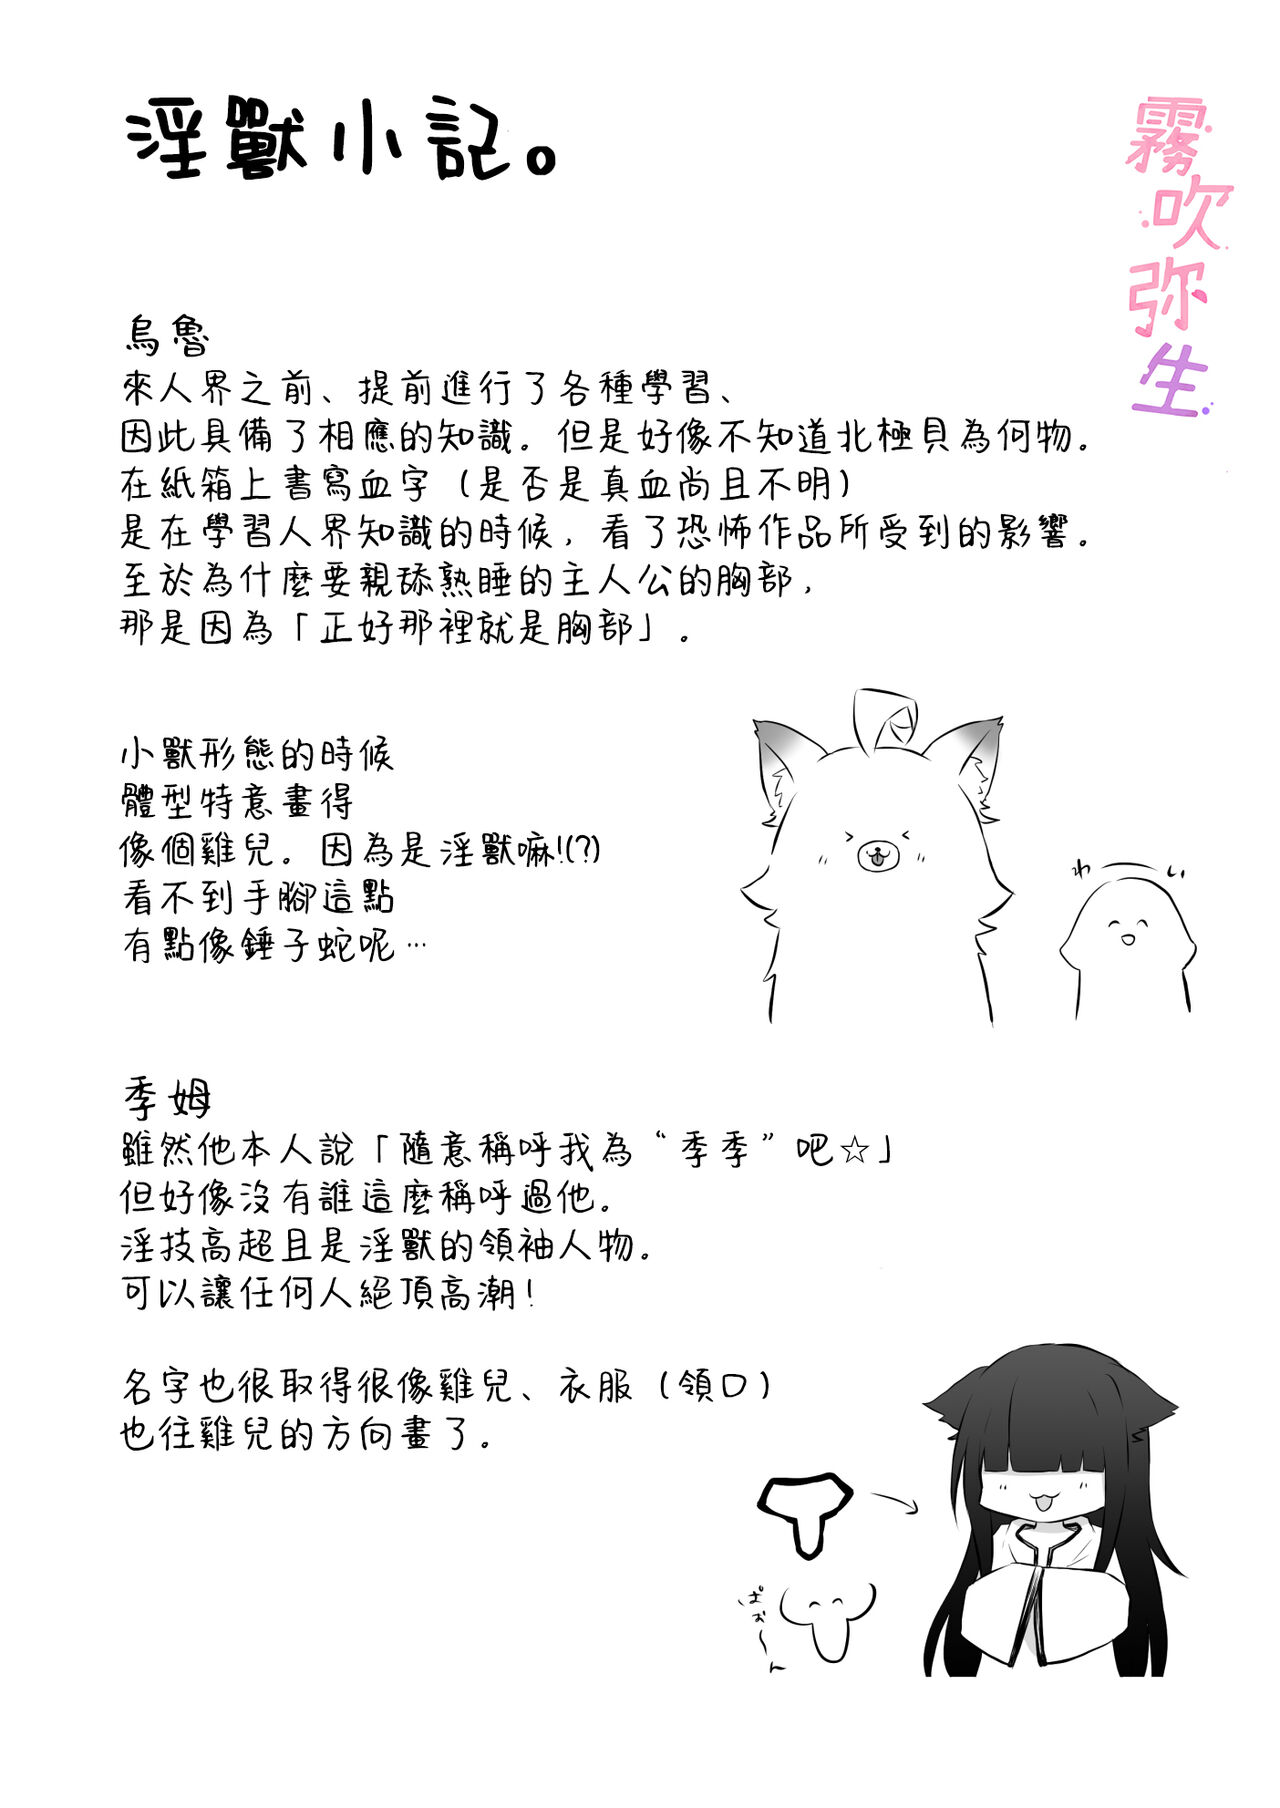 淫獸小記。
霧吹弥生
烏魯
來人界之前、提前進行了各種學習、
因此具備了相應的知識。但是好像不知道北極貝為何物。
在紙箱上書寫血字（是否是真血尚且不明）
是在學習人界知識的時候，看了恐怖作品所受到的影響。
至於為什麼要親舔熟睡的主人公的胸部，
那是因為「正好那裡就是胸部」。
小獸形態的時候
體型特意畫得
像個雞兒。因為是淫獸嘛!(?)
看不到手腳這點
有點像錘子蛇呢…
わ
い
季姆
雖然他本人說「隨意稱呼我為“季季”吧☆」
但好像沒有誰這麼稱呼過他。
淫技高超且是淫獸的領袖人物。
可以讓任何人絕頂高潮!
名字也很取得很像雞兒、衣服（領口）
也往雞兒的方向畫了。
ぱぉ～ん